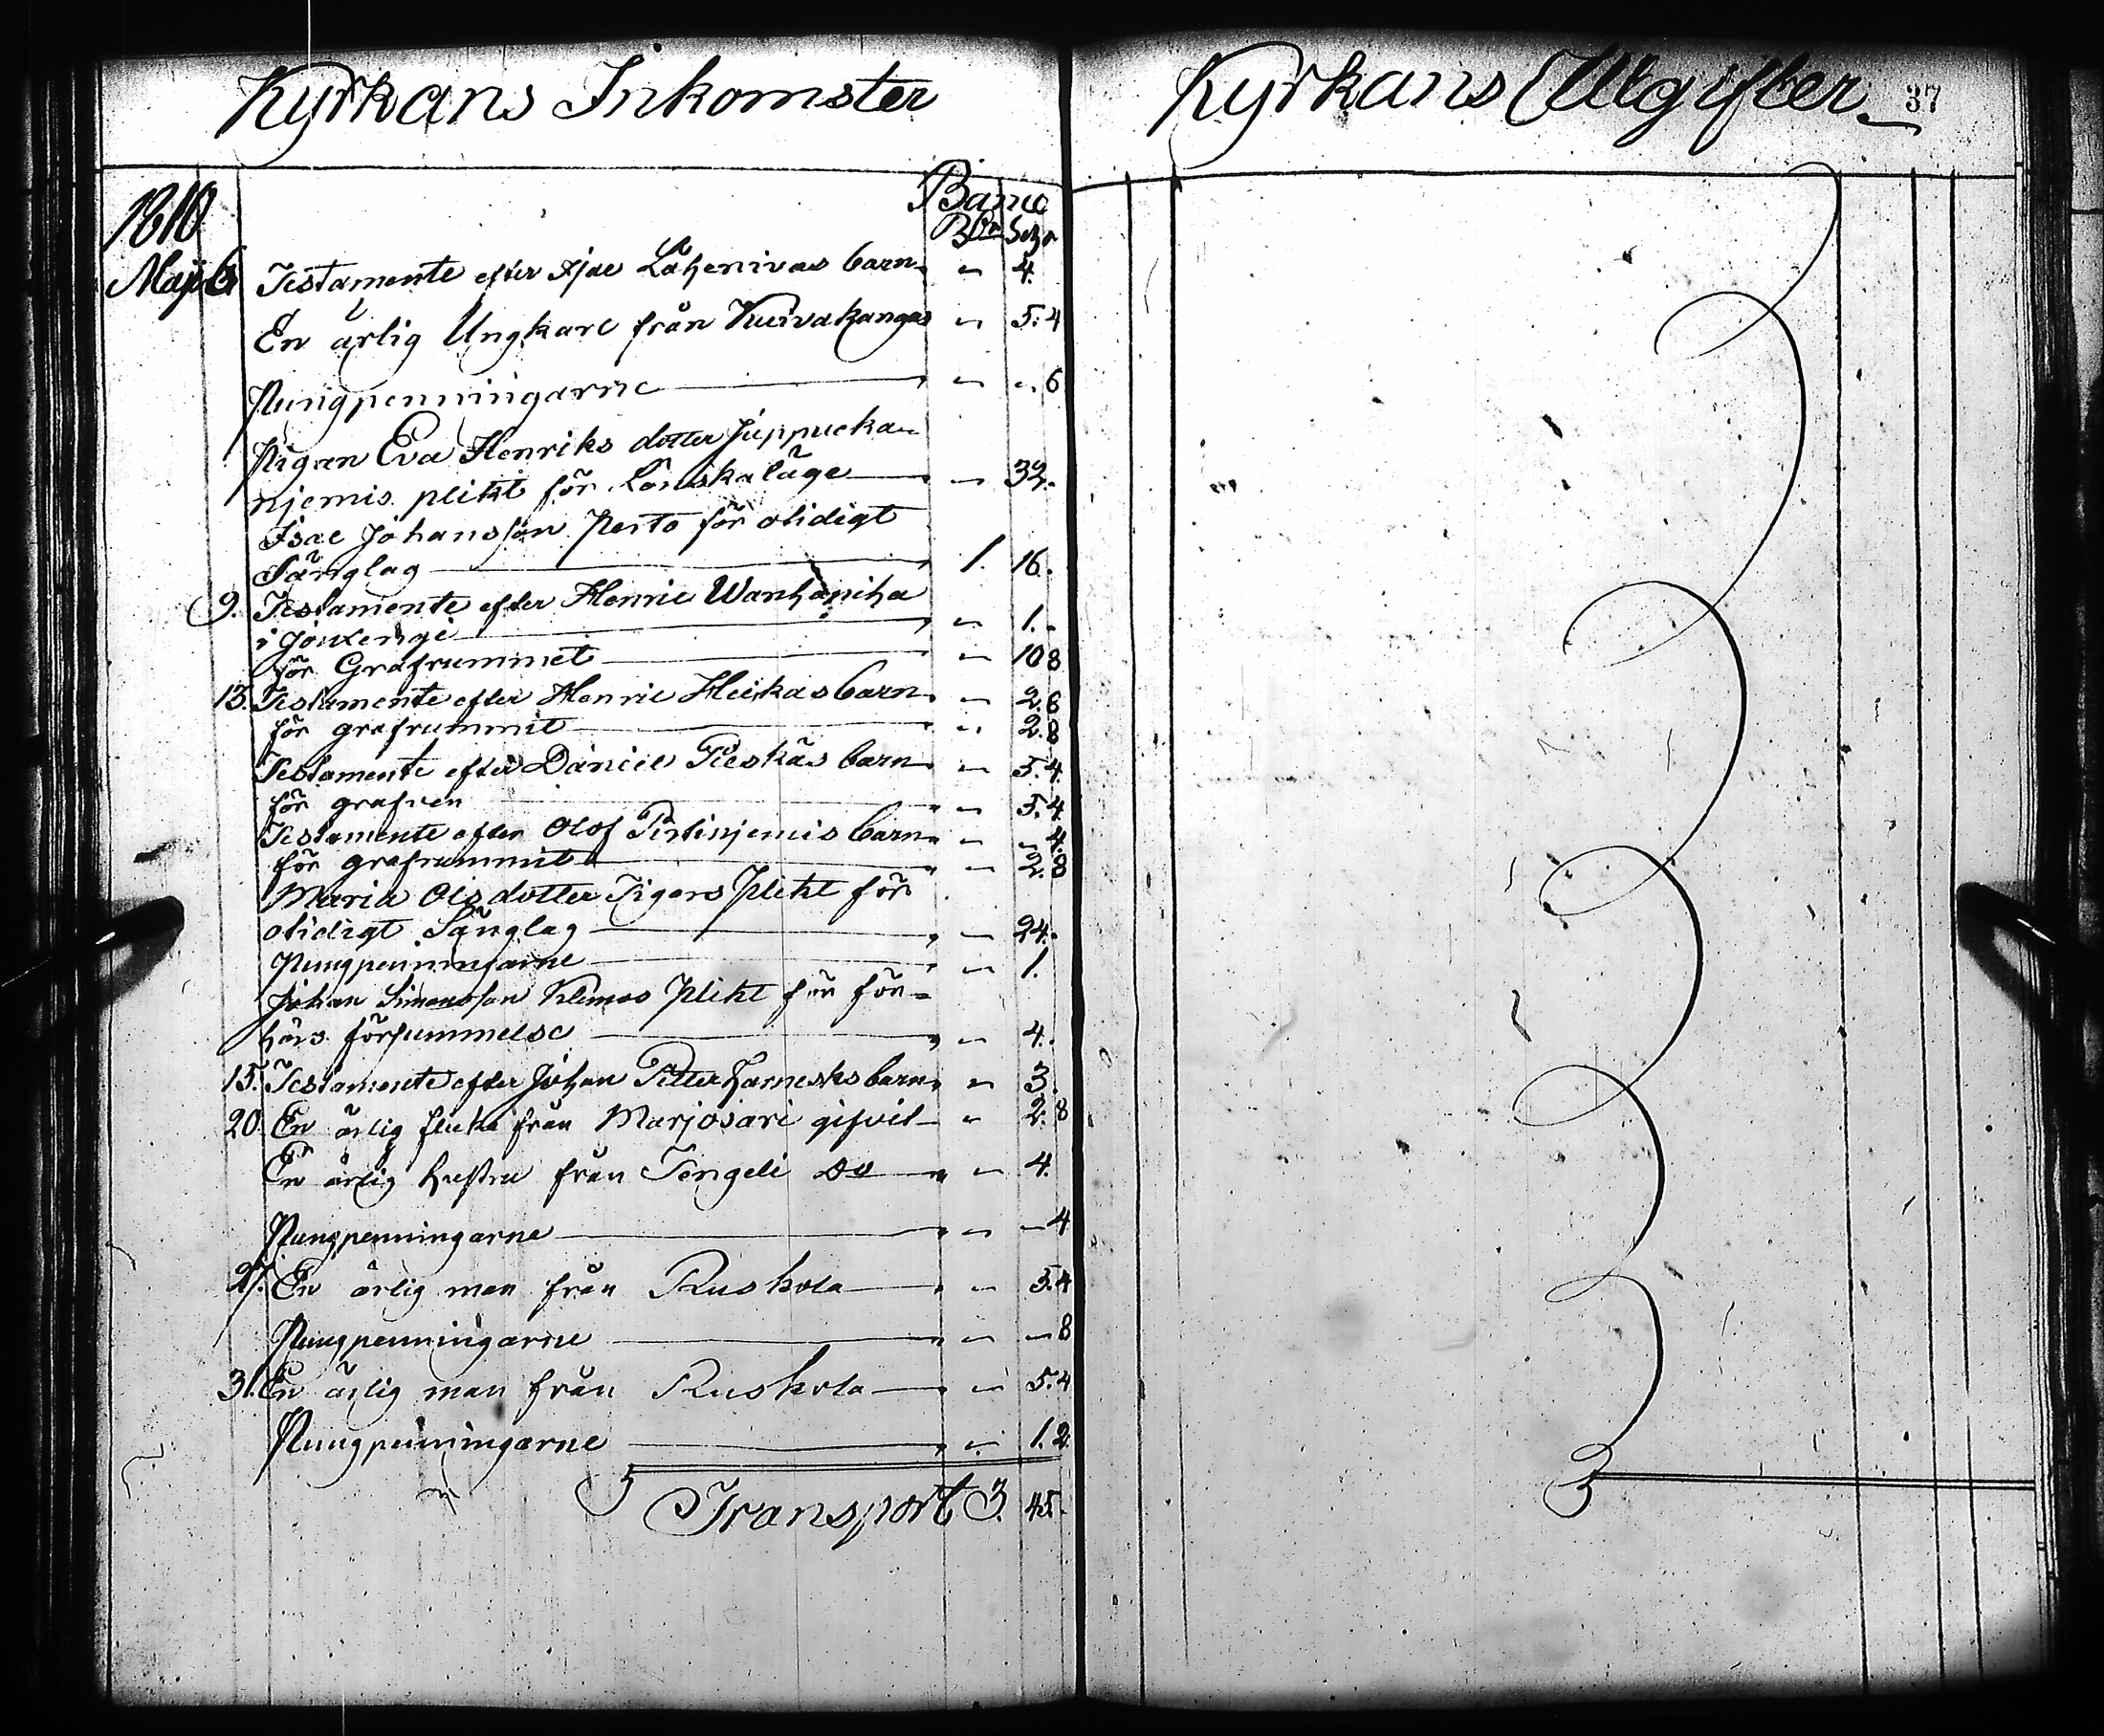 Kyrkans Inkomster
1810
Banco
Rdr Sch r
Maji 6 Testamente efter Isac Lähenivas barn „ 4.
En ärlig Ungkarl från Kuivakangas „ 5. 4
Pungpenningarne „ „ 6
Pigan Eva Henriks dotter Juppucka
njemis plikt för Lönskaläge „ 32.
Isac Johansson Perto för otidigt
Sänglag 1. 16.
9. Testamente efter Henric Wanhaniha
i Jouxengi „ 1. „
för Grafrummet „ 10 8
13. Testamente efter Henric Heikas barn „ 2. 6
för grafrummit „ 2. 8
Testamente efter Daniel Pieskäs barn „ 5. 4.
för grafven „ 5. 4
Testamente efter Olof Pirtinjemis barn „ „ 4.
för grafrummit „ 2. 8
Maria Olsdotter Tigers Plikt för
otidigt Sänglag „ 24.
Pungpenningarne „ 1.
Johan Simonsson Klemos Plikt för för-
hörs försummelse „ 4.
15. Testamente efter Johan Petter Harnesks barn „ 3.
20. En ärlig flicka från Marjosari gifvit „ 2. 8
En ärlig hustru från Tengeli Do „ 4.
Pungpenningarne „ „ 4
27. En ärlig man från Ruskola „ 5. 4
Pungpenningarne „ „ 8
31. En ärlig man från Ruskola „ 5. 4
Pungpenningarne „ 1. 2.
Transport 3. 45.
Kyrkans Utgifter
37